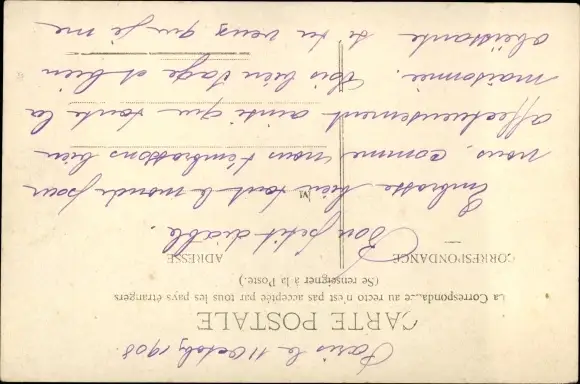 Paris le 11 Octobre 1908
CARTE POSTALE
La Correspondance au recto n'est pas acceptée par tous les pays étrangers
(Se renseigner à la Poste.)
CORRESPONDANCE
ADRESSE
Bon petit diable.
Embrasse bien tout le monde pour
nous, comme nous t'embrassons bien
affectueusement ainsi que toute la
maisonnée. Sois bien sage et bien
obéissante si tu veux que je me